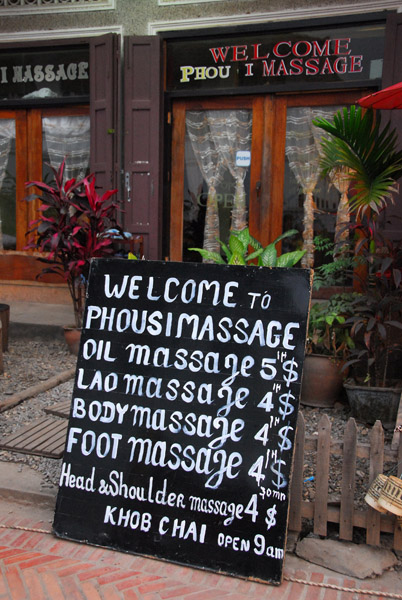 WELCOME
PHOU I MASSAGE
I MASSAGE
PUSH
WELCOME TO
PHOUSI MASSAGE
OIL massage 5 1H $
LAO massage 4 1H $
BODY massage 4 1H $
FOOT massage 4 1H $
Head & Shoulder massage 4 30mn $
KHOB CHAI OPEN 9am